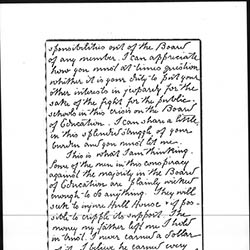 sponsibilities out of the Board
of any member. I can appreciate
how you must at times question
whether it is your duty to put your
other interests in jeopardy for the
sake of the fight for the public
schools in this crisis on the Board
of Education. I can share a little
in this splendid struggle of your
burden and you must let me.
This is what I am thinking.
Some of the men in this conspiracy
against the majority in the Board
of Education are plainly wicked
enough to be anything. They will
seek to injure Hull House & if pos-
sible to cripple its support. The
money my father left me I hold
in trust. I never earned a dollar
of it. I believe he earned every